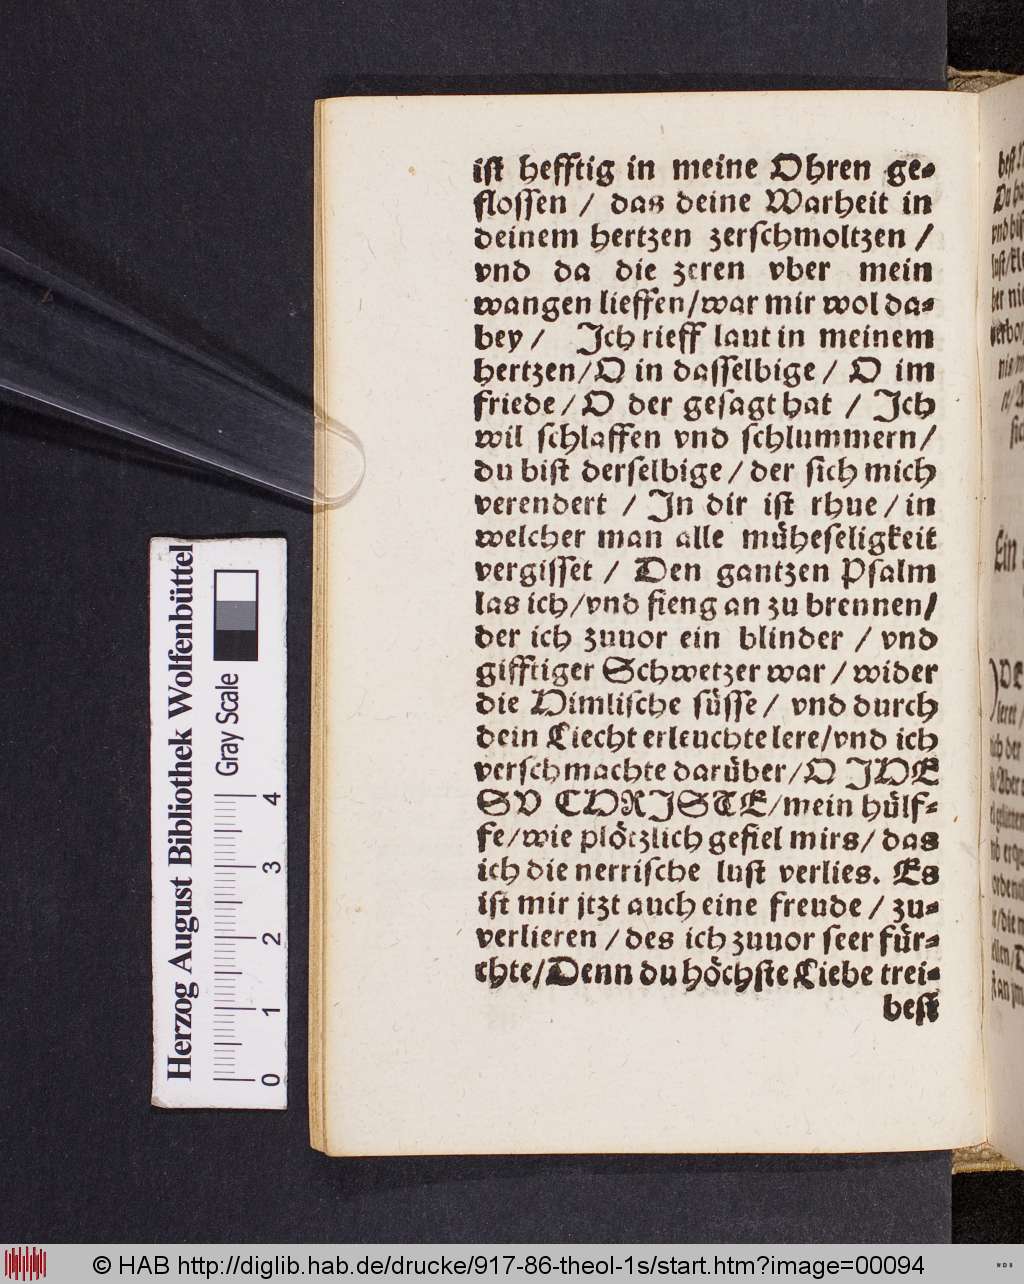 ist hefftig in meine Ohren ge-
flossen / das deine Warheit in
deinem hertzen zerschmoltzen /
vnd da die zeren vber mein
wangen lieffen/war mir wol da-
bey / Ich rieff laut in meinem
hertzen/O in dasselbige / O im
friede / O der gesagt hat / Ich
wil schlaffen vnd schlummern/
du bist derselbige / der sich mich
verendert / In dir ist rhue / in
welcher man alle müheseligkeit
vergisset / Den gantzen Psalm
las ich/vnd fieng an zu brennen/
der ich zuuor ein blinder / vnd
gifftiger Schwetzer war / wider
die Himlische süsse / vnd durch
dein Liecht erleuchte lere/vnd ich
verschmachte darüber/O JHE
SV CHRISTE/mein hülf-
fe/wie plötzlich gefiel mirs/ das
ich die nerrische lust verlies. Es
ist mir jtzt auch eine freude / zu-
verlieren / des ich zuuor seer für-
chte/Denn du höchste Liebe trei-
best
Herzog August Bibliothek Wolfenbüttel
Gray Scale
0 1 2 3 4
Ein
© HAB http://diglib.hab.de/drucke/917-86-theol-1s/start.htm?image=00094